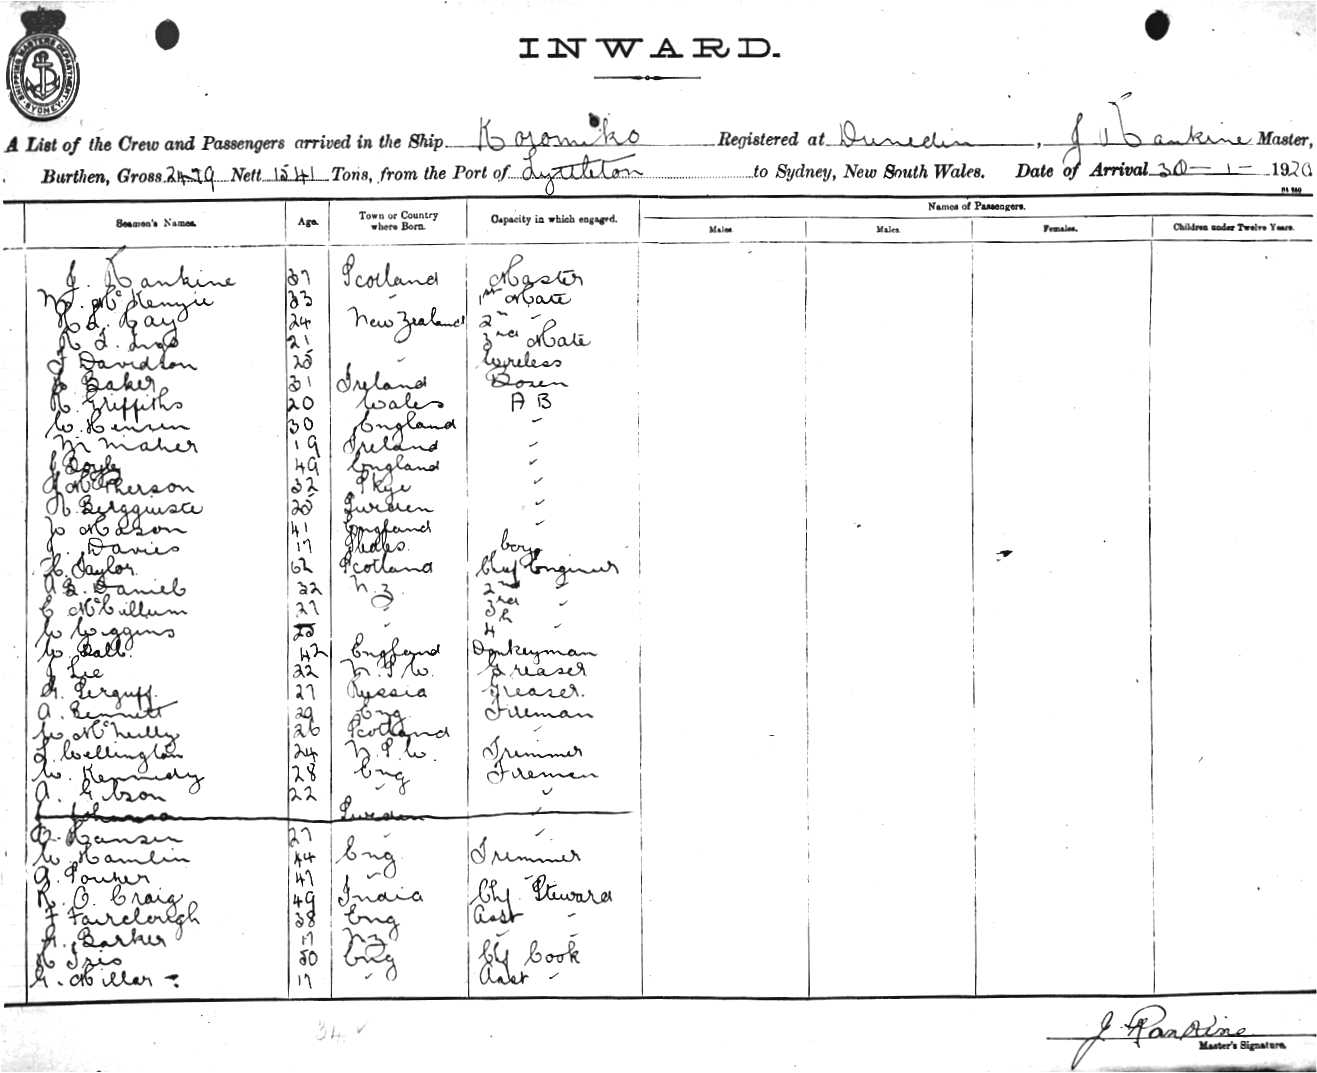 SHIPPING MASTERS DEPARTMENT SYDNEY
INWARD.
A List of the Crew and Passengers arrived in the Ship Kozomiko Registered at Dunedin, J Rankine Master,
Burthen, Gross 2479 Nett 1541 Tons, from the Port of Lyttleton to Sydney, New South Wales. Date of Arrival 30-1-1920
Names of Passengers.
Seamen's Names. Age. Town or Country where Born. Capacity in which engaged. Males. Males. Females. Children under Twelve Years.
J. Rankine 37 Scotland Master
McKenzie 33 " 1st Mate
Hay 24 New Zealand 2nd "
21 3rd Mate
J Davidson 25 " Wireless
Baker 31 Ireland Bosen
R. Griffiths 20 Wales A B
W. Hensen 30 England "
M Maher 19 Ireland "
J Doyle 49 England "
J McPherson 32 Skye "
N. Bergquiste 25 Sweden "
Mason 41 England "
J. Davies 17 Wales. boy
H. Taylor 62 Scotland Chief Engineer
A. G. Daniel 32 N.Z. 2nd "
C McCillum 27 " 3rd "
W Wiggins 25 " 4th "
W Ball. 42 England Donkeyman
J Lee 22 N.S.W. Greaser
27 Russia Greaser.
A. Bennett 29 Eng Fireman
W McNeilly 26 Scotland "
L. Wellington 24 N.S.W. Trimmer
W. Kennedy 28 Eng Fireman
A. Gibson 22 " "
Sweden "
Hansen 27 "
W Hamlin 44 Eng Trimmer
47 "
R. O. Craig 49 India Chf Steward
F Fairclough 38 Eng Asst "
Barker 17 NZ " "
30 Eng Cf Cook
G. Millar 17 " Asst "
34
J. Rankine
Master's Signature.